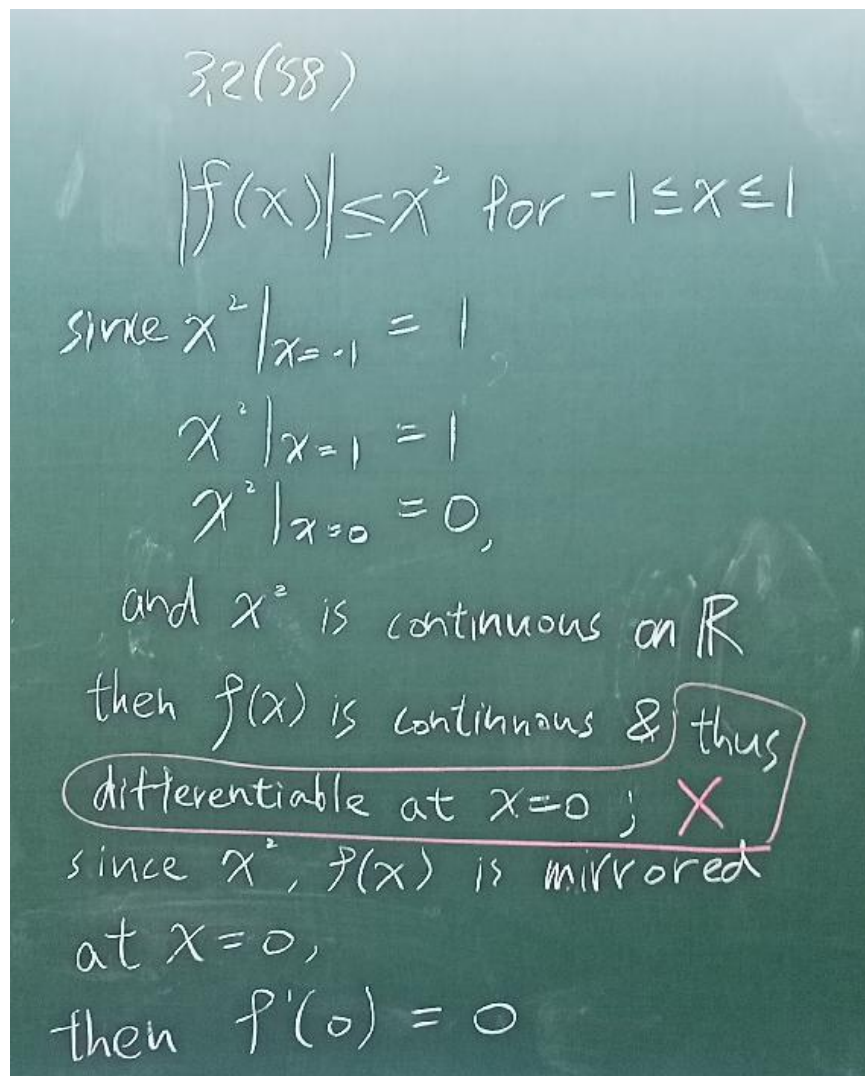 3.2(58)
|f(x)|≤x² for -1≤x≤1
since x²|x=-1 = 1,
x²|x=1 = 1
x²|x=0 = 0,
and x² is continuous on ℝ
then f(x) is continuous & thus
differentiable at x=0 ; X
since x², f(x) is mirrored
at x=0,
then f'(0) = 0